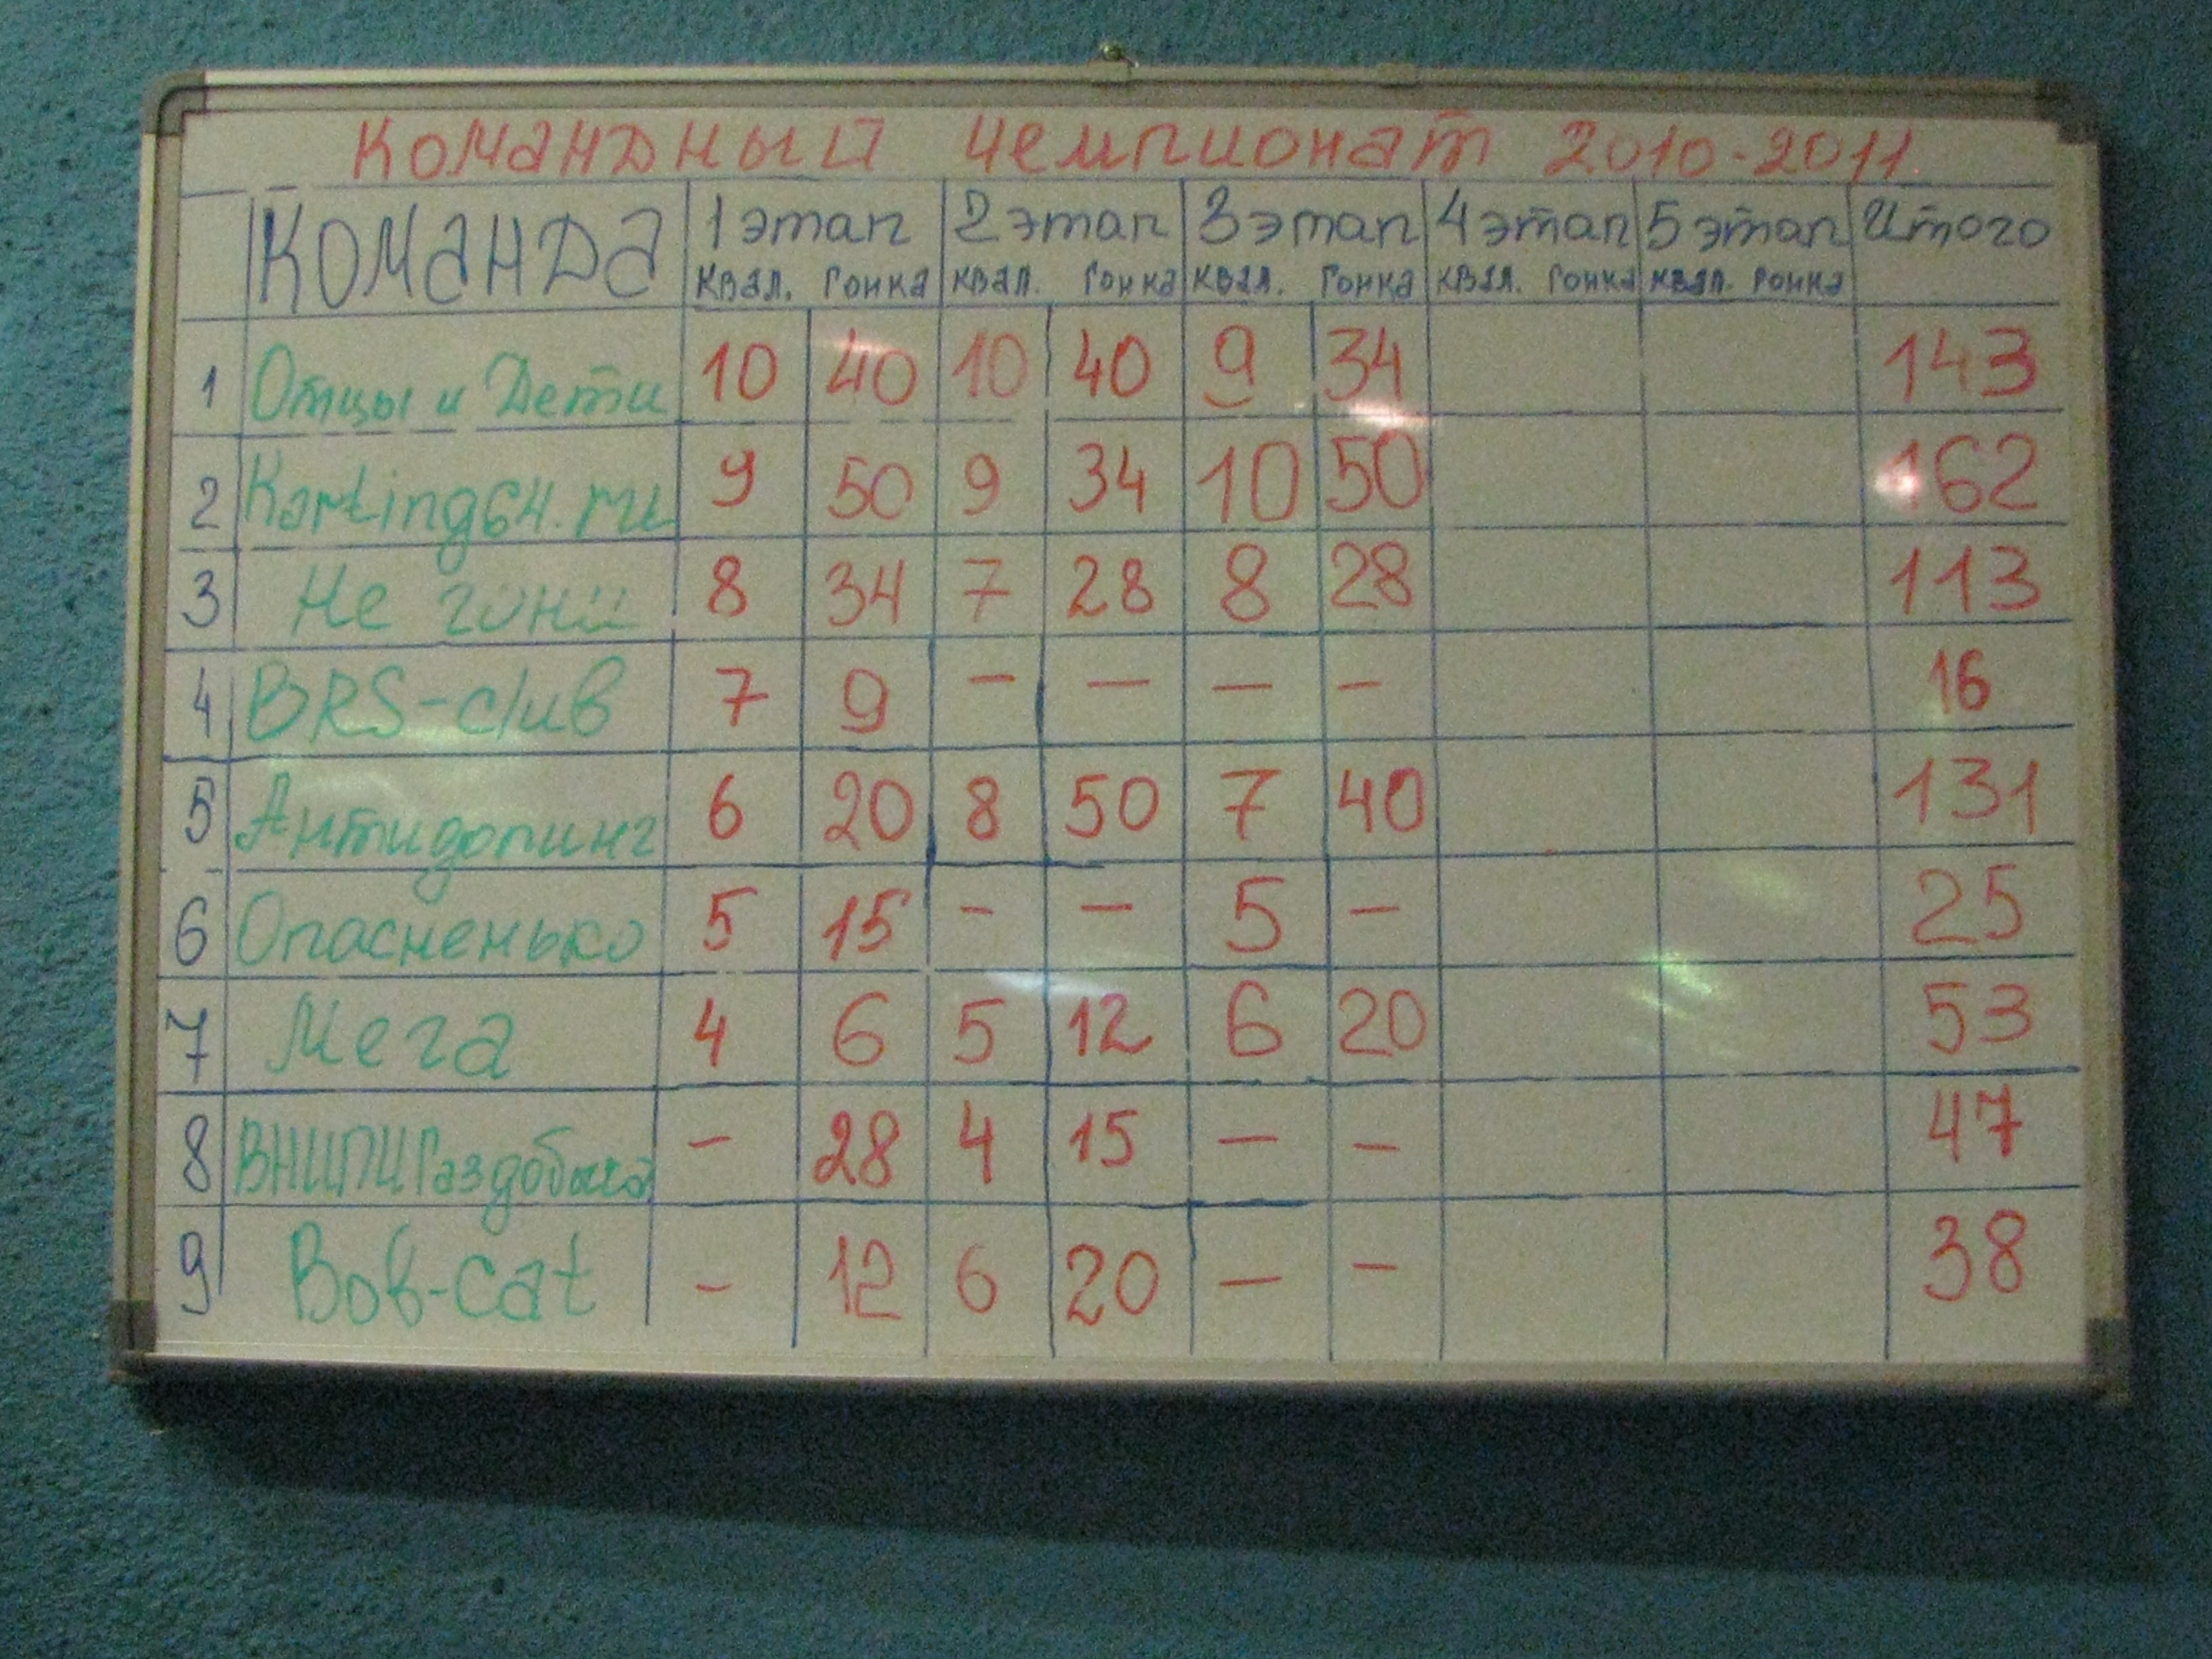 Командный чемпионат 2010-2011.
КОМАНДА 1 этап 2 этап 3 этап 4 этап 5 этап Итого
квал. Гонка квал. Гонка квал. Гонка квал. Гонка квал. Гонка
1 Отцы и Дети 10 40 10 40 9 34 143
2 Karting64.ru 9 50 9 34 10 50 162
3 Не гони 8 34 7 28 8 28 113
4 BRS-club 7 9 - - - - 16
5 Антидопинг 6 20 8 50 7 40 131
6 Опасненько 5 15 - - 5 - 25
7 Мега 4 6 5 12 6 20 53
8 ВНИПИГаздобыча - 28 4 15 - - 47
9 Bob-cat - 12 6 20 - - 38